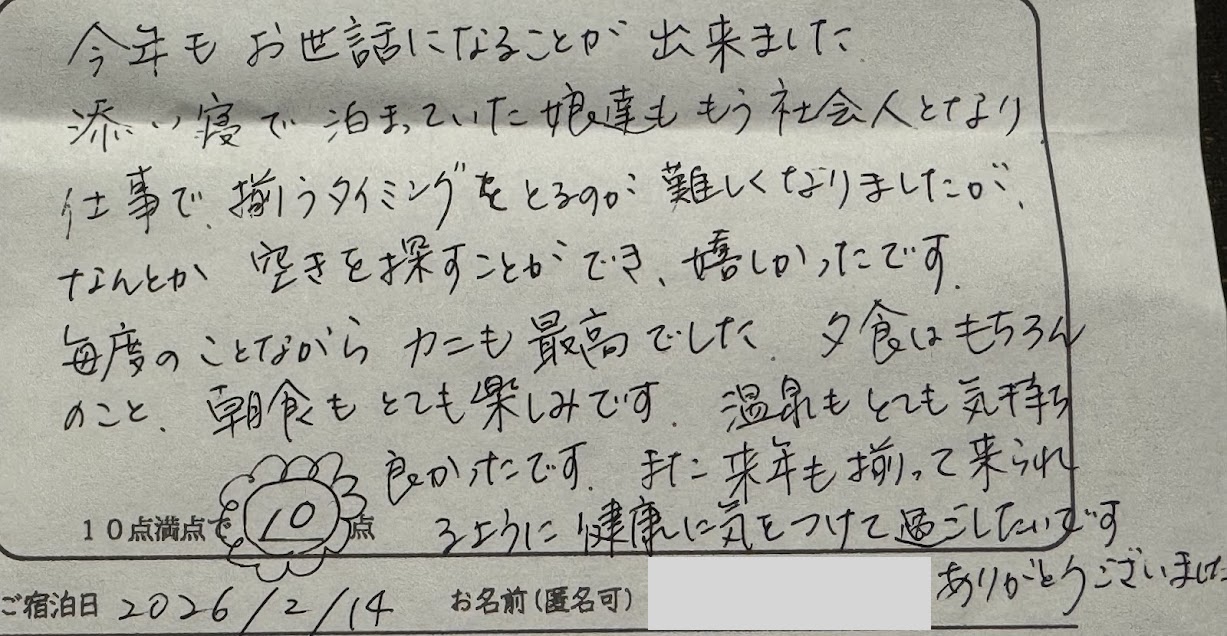 今年もお世話になることが出来ました
添い寝で泊まっていた娘達ももう社会人となり
仕事で揃うタイミングをとるのが難しくなりましたが、
なんとか空きを探すことができ、嬉しかったです.
毎度のことながらカニも最高でした. 夕食はもちろん
のこと、朝食もとても楽しみです. 温泉もとても気持ち
良かったです. また来年も揃って来られ
るように健康に気をつけて過ごしたいです
10点満点で 10 点
ありがとうございました
ご宿泊日 2026/2/14 お名前(匿名可)